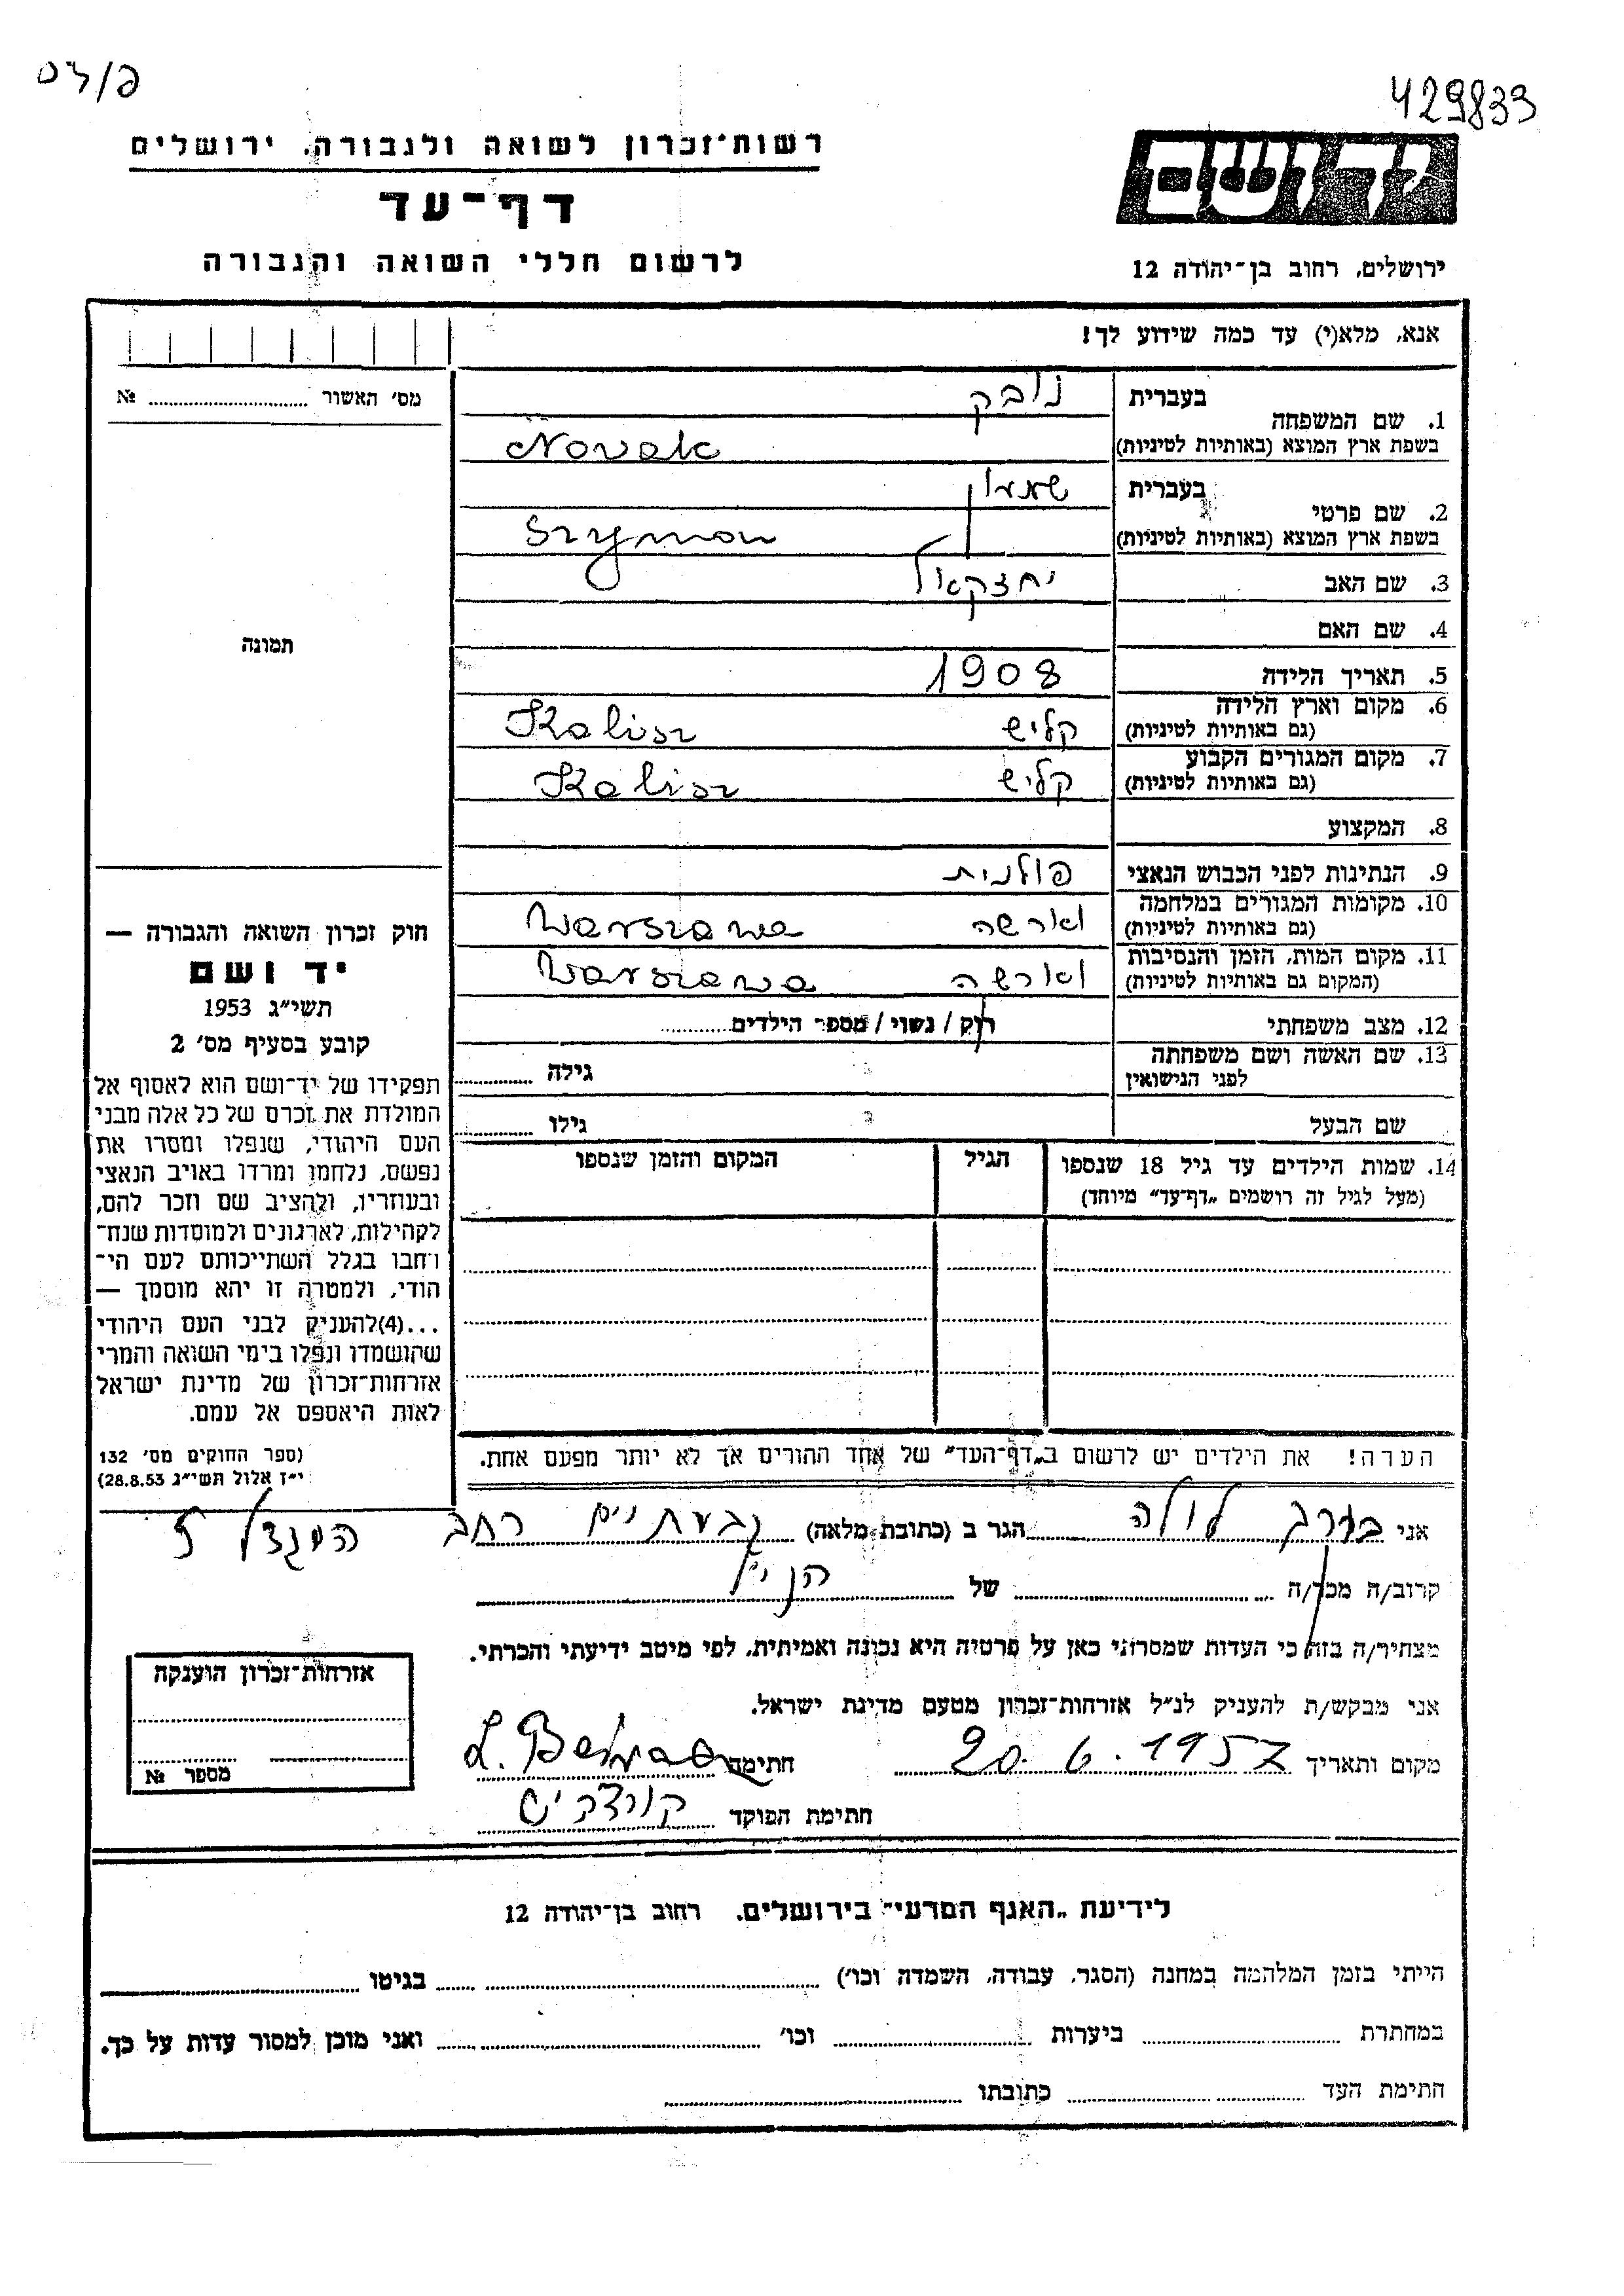 429833
רשות־זכרון לשואה ולגבורה, ירושלים
יד ושם
דף־עד
לרשום חללי השואה והגבורה
ירושלים, רחוב בן־יהודה 12
אנא, מלא(י) עד כמה שידוע לך!
מס׳ האשור № 
1. שם המשפחה בעברית נובק
בשפת ארץ המוצא (באותיות לטיניות) Novak
2. שם פרטי בעברית שמעון
בשפת ארץ המוצא (באותיות לטיניות) Szymon
3. שם האב יחזקאל
4. שם האם
תמונה
5. תאריך הלידה 1908
6. מקום וארץ הלידה (גם באותיות לטיניות) קליש Kalisz
7. מקום המגורים הקבוע (גם באותיות לטיניות) קליש Kalisz
8. המקצוע
9. הנתינות לפני הכבוש הנאצי פולנית
10. מקומות המגורים במלחמה (גם באותיות לטיניות) וארשה Warszawa
11. מקום המות, הזמן והנסיבות (המקום גם באותיות לטיניות) וארשה Warszawa
12. מצב משפחתי רוק / נשוי / מספר הילדים
13. שם האשה ושם משפחתה לפני הנישואין גילה
שם הבעל גילו
14. שמות הילדים עד גיל 18 שנספו הגיל המקום והזמן שנספו
(מעל לגיל זה רושמים „דף־עד" מיוחד)
חוק זכרון השואה והגבורה —
יד ושם
תשי״ג 1953
קובע בסעיף מס׳ 2
תפקידו של יד־ושם הוא לאסוף אל
המולדת את זכרם של כל אלה מבני
העם היהודי, שנפלו ומסרו את
נפשם, נלחמו ומרדו באויב הנאצי
ובעוזריו, ולהציב שם וזכר להם,
לקהילות, לארגונים ולמוסדות שנח־
רחבו בגלל השתייכותם לעם הי־
הודי, ולמטרה זו יהא מוסמך —
...(4)להעניק לבני העם היהודי
שהושמדו ונפלו בימי השואה והמרי
אזרחות־זכרון של מדינת ישראל
לאות היאספם אל עמם.
(ספר החוקים מס׳ 132
י״ז אלול תשי״ג 28.8.53)
הערה! את הילדים יש לרשום ב„דף־העד" של אחד ההורים אך לא יותר מפעם אחת.
אני לולה הגר ב (כתובת מלאה) גבעתיים רחב המגדל 5
קרוב/ה מכר/ה של הנ״ל
מצהיר/ה בזה כי העדות שמסרתי כאן על פרטיה היא נכונה ואמיתית, לפי מיטב ידיעתי והכרתי.
אני מבקש/ת להעניק לנ״ל אזרחות־זכרון מטעם מדינת ישראל.
מקום ותאריך 20.6.1957 חתימה L.
חתימת הפוקד
אזרחות־זכרון הוענקה
מספר №
לידיעת „האנף המדעי" בירושלים, רחוב בן־יהודה 12
הייתי בזמן המלהמה במחנה (הסגר, עבודה, השמדה וכו׳) בגיטו
במחתרת ביערות וכו׳ ואני מוכן למסור עדות על כך.
חתימת העד כתובתו